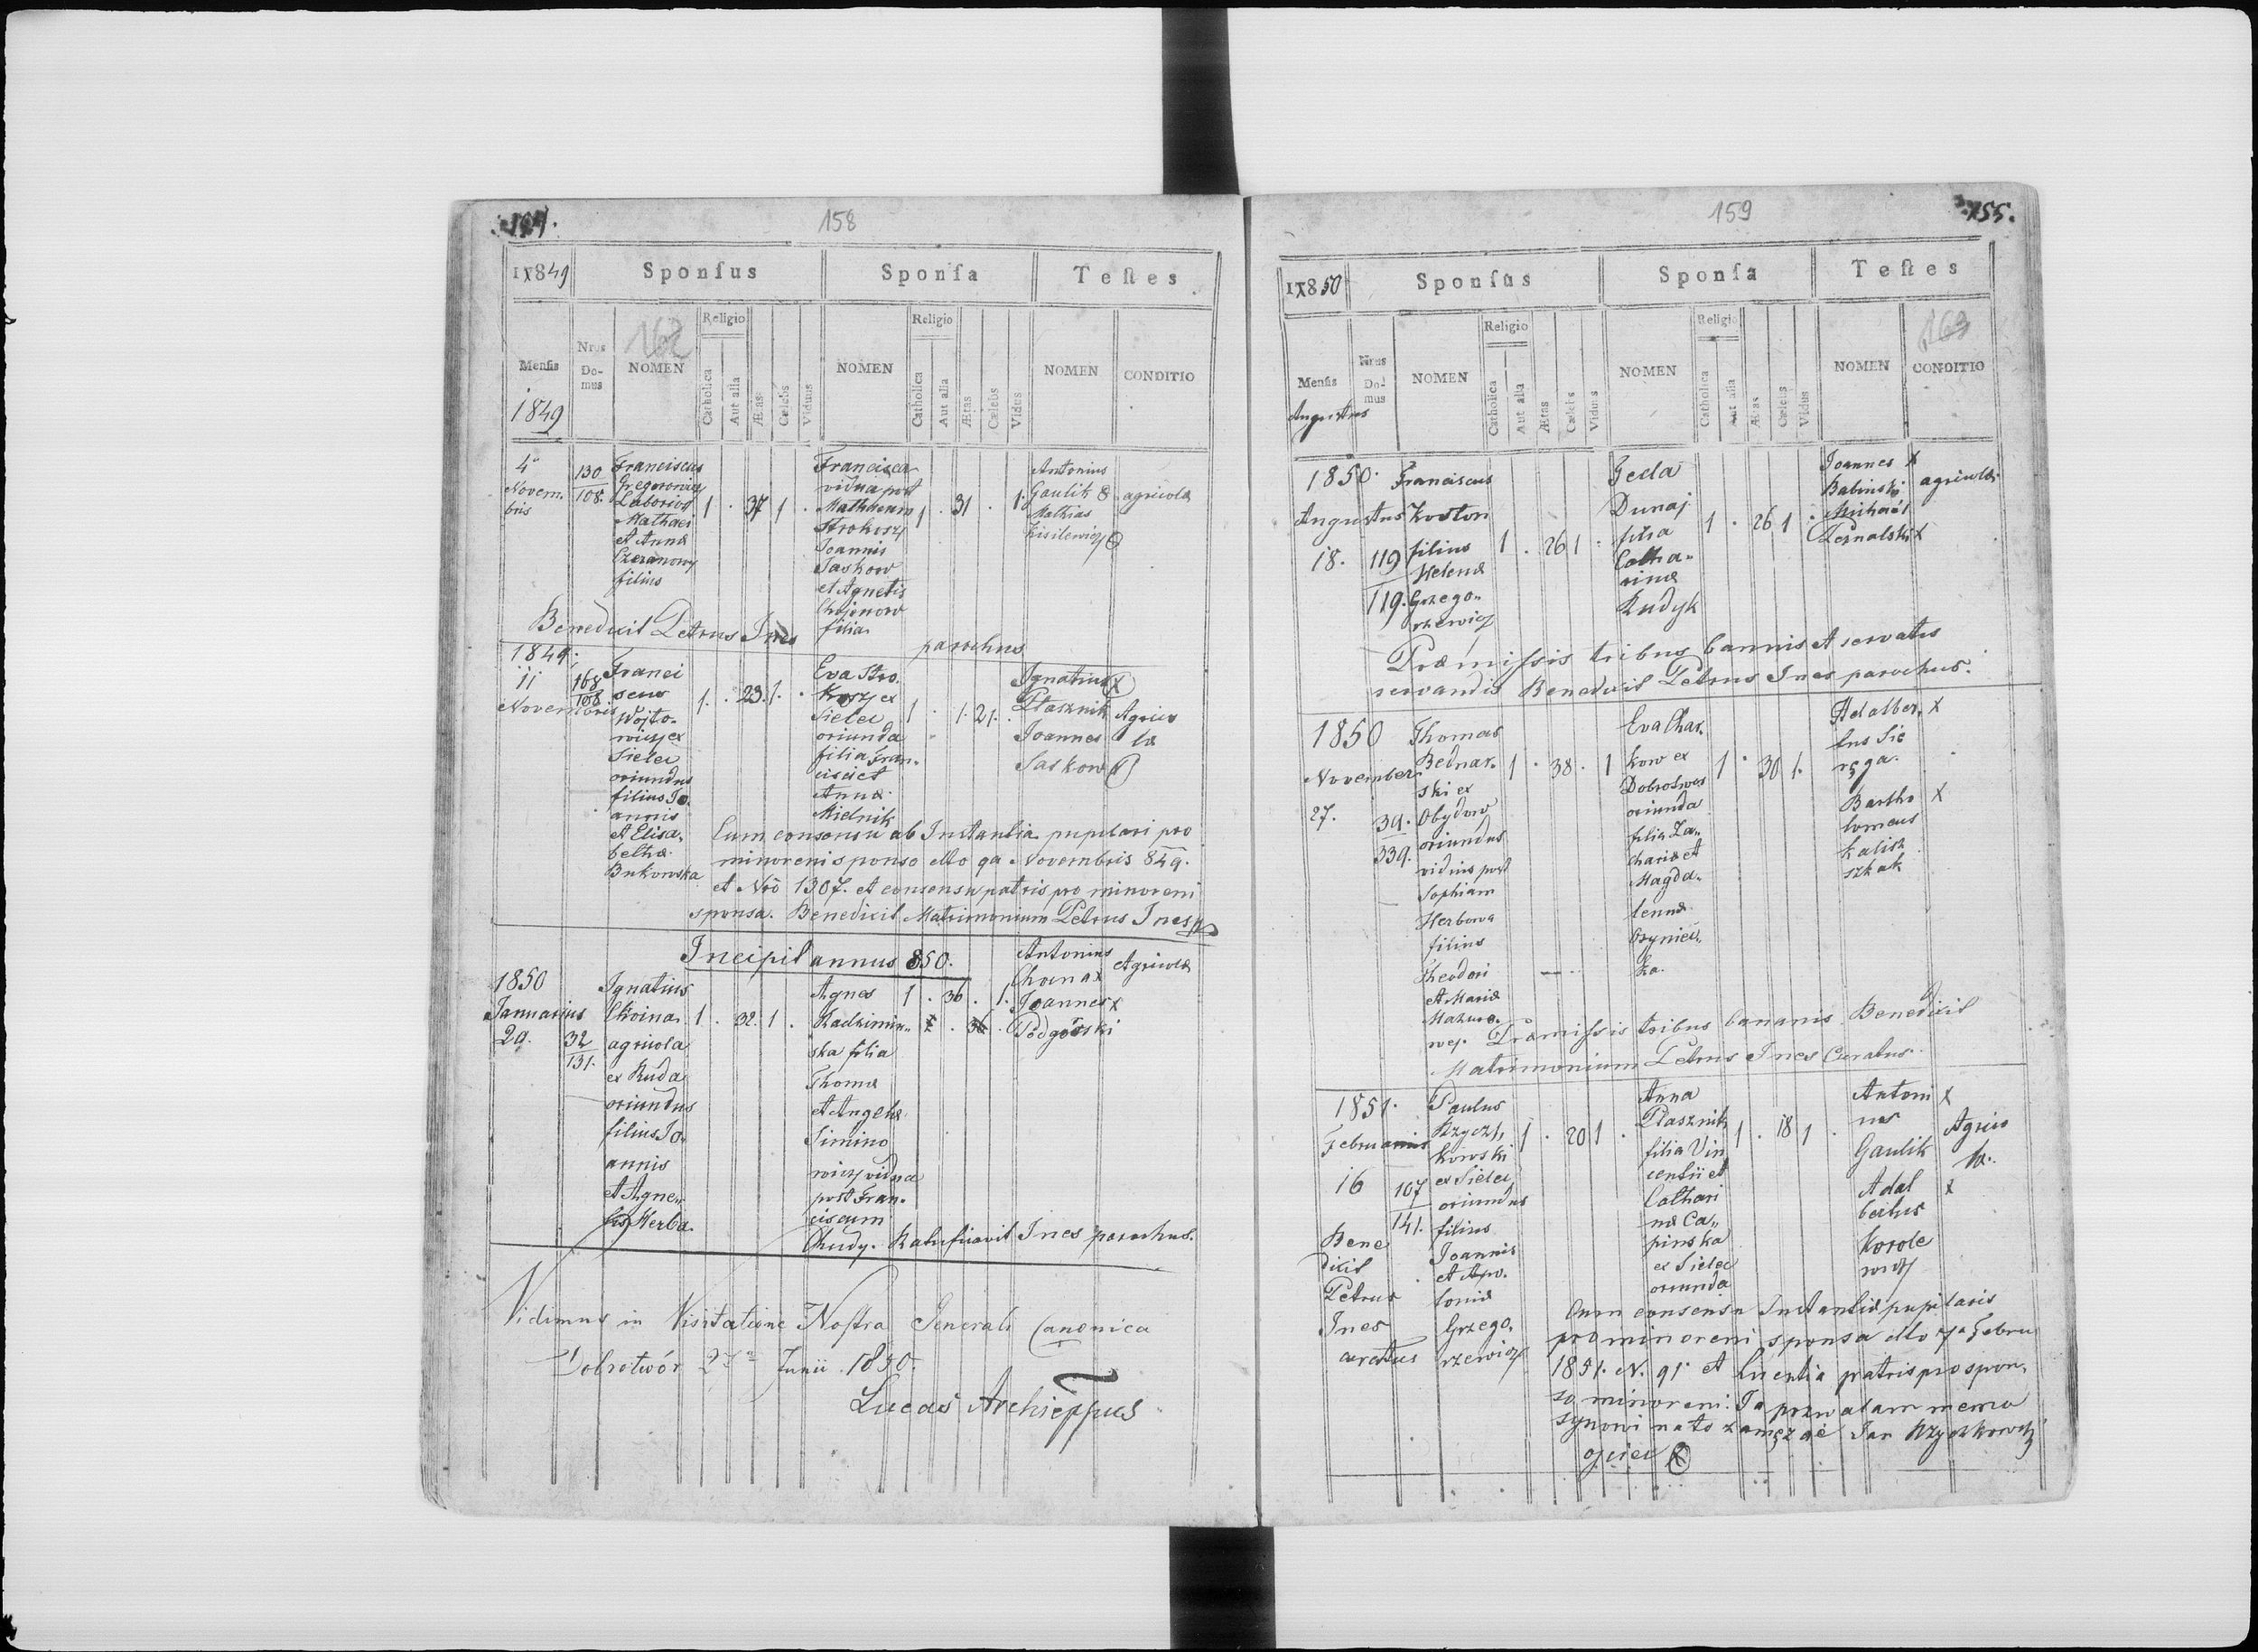 158
1X849
Sponſus
Sponſa
Teſtes
Menſis
1849
Nrus Do-mus
NOMEN
Religio
Catholica
Aut alia
Ætas
Cœlebs
Viduus
NOMEN
Religio
Catholica
Aut alia
Ætas
Cœlebs
Vidus
NOMEN
CONDITIO
4
Novem.
bris
130
108.
Franciscus
Gregorowicz
Laborios
Mathaei
et Annæ
filius
1 . 37 1 .
Francisca
vidua post
Mathaeum
Strokosz
Joannis
Saskow
et Agnetis
Chojnow
filia
1 . 31 . 1.
Antonius
Gaulik
Mathias
Kisilewicz
agricolæ
Benedixit Petrus Ines parochus
1849.
11
Novembris
168
108
Franci
scus
Wojto-
wicz ex
Sielec
oriundus
filius Jo.
annis
et Elisa.
bethæ
Bukowska
1. . 23. 1. .
Eva Stro.
kosz ex
Sielec
oriunda
filia Fran.
cisci et
Annæ
Mielnik
1 . 1. 21. .
Ignatius X
Ptasznik
Joannes
Saskow
Agrico
læ
Cum consensu ab Instantia pupilari pro
minoreni sponso ddto 9a Novembris 849.
et Nro 1307. et consensu patris pro minoreni
sponsa. Benedixit Matrimonium Petrus Ines
Incipit annus 850.
1850
Januarius
29.
32
131.
Ignatius
Choina
agricola
ex Ruda
oriundus
filius Jo.
annis
et Agne-
tis Herba.
1 . 32. 1 .
Agnes
Radzimin-
ska filia
Thomæ
et Angelæ
Simino
wicz vidua
post Fran.
ciscum
Chudy.
1 . 36 . 1.
Antonius
Choina x
Joannes x
Podgórski
Agricolæ
Ratificavit Ines parochus.
Vidimus in Visitatione Nostra Generali Canonica
Dobrotwór 27a Junii 1850.
Lucas Archieppus
159
155.
1X850
Sponſus
Sponſa
Teſtes
Menſis
Augustus
Nrus Do-mus
NOMEN
Religio
Catholica
Aut alia
Ætas
Cœlebs
Viduus
NOMEN
Religio
Catholica
Aut alia
Ætas
Cœlebs
Vidus
NOMEN
163
CONDITIO
1850.
Augustus
18.
119
119.
Franciscus
Koston
filius
Helenæ
Grzego-
rzewicz
1 . 26 1 .
Tecla
Dunaj
filia
Catha-
rinæ
Kudyk
1 . 26 1 .
Joannes X
Babinski
Michaël
Pernalski X
agricolæ
Præmissis tribus bannis et servatis
servandis Benedixit Petrus Ines parochus.
1850
November
27.
39.
339.
Thomas
Bednar-
ski ex
Obydow
oriundus
viduus post
Sophiam
Herbowa
filius
Theodori
et Mariæ
Mazuro-
wej.
1 . 38 . 1
Eva Char.
kow ex
Dobrotwor
oriunda
filia Za-
chariæ et
Magda-
lennæ
ka.
1 . 30 1.
Adalber. X
tus Sie
ręga.
Bartho X
lomeus
Kalisz
szkak
Præmissis tribus bannis Benedixit
Matrimonium Petrus Ines Curatus.
1851.
Februarius
16
107
141.
Bene
dixit
Petrus
Ines
curatus
Paulus
Krzycz-
kowski
ex Sielec
oriundus
filius
Joannis
et Apo.
loniæ
Grzego.
rzewicz
1 . 20 1 .
Anna
Ptasznik
filia Vin
centii et
Cathari
næ Ca-
pinska
ex Sielec
oriunda
1 . 18 1 .
Antoni X
us
Gaulik
Adal X
bertus
Korole
wicz
Agrico
læ.
Cum consensu Instantiæ pupilaris
pro minoreni sponsa ddto 7a Febru
1851. N. 91. et licentia patris pro spon-
so minoreni: Ja pozwalam memu
synowi na to zamęzcie Jan Krzyczkowski
ojciec X